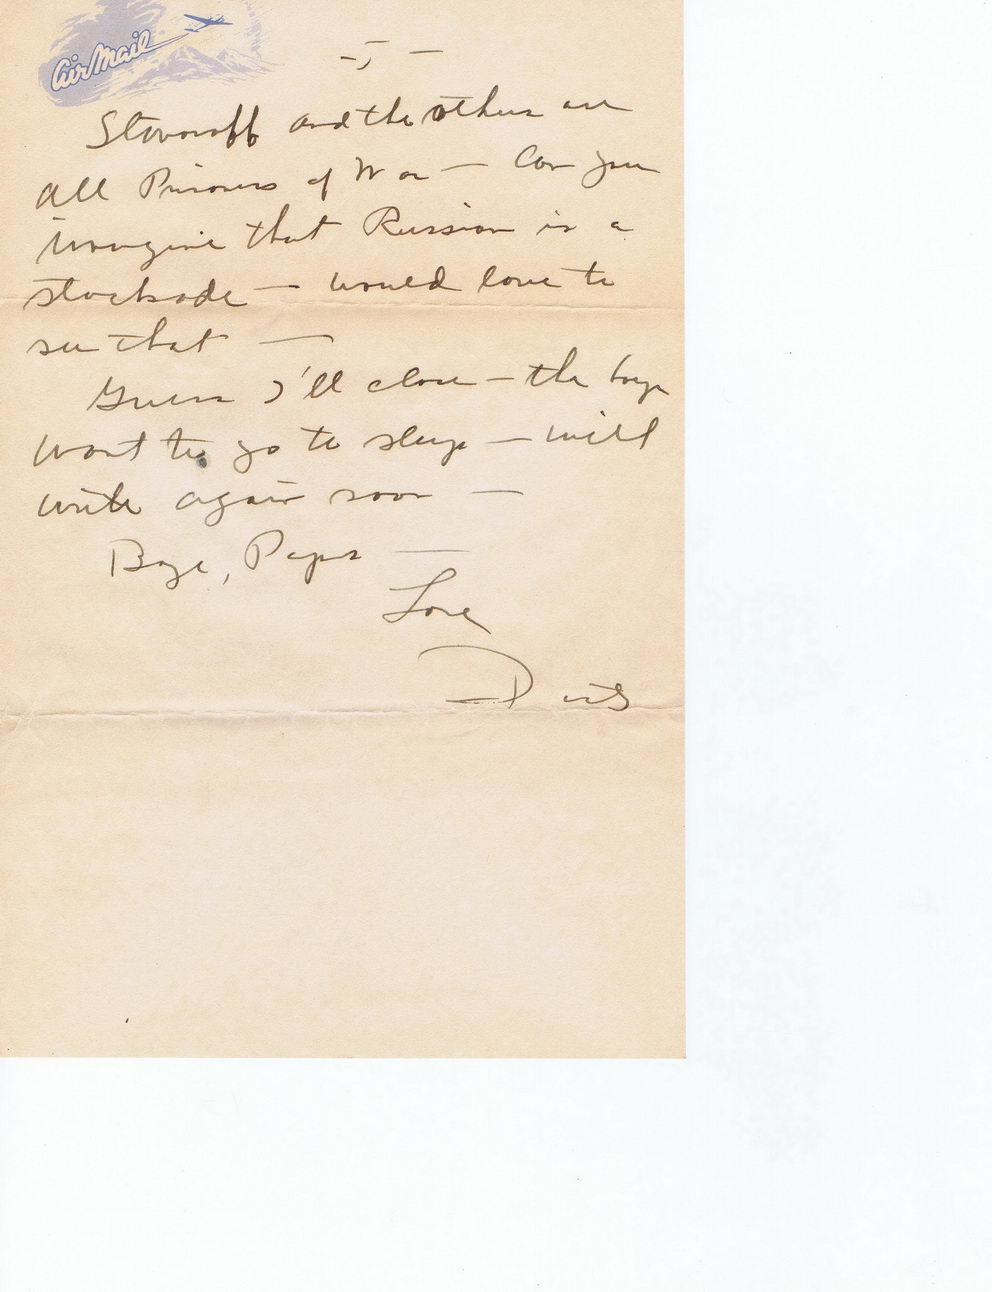 Air Mail
- 5 -
Stovoroff and the others are
all Prisoners of War — Can you
imagine that Russian in a
stockade — would love to
see that —
Guess I'll close — the boys
want to go to sleep — will
write again soon —
Bye, Paps —
Love